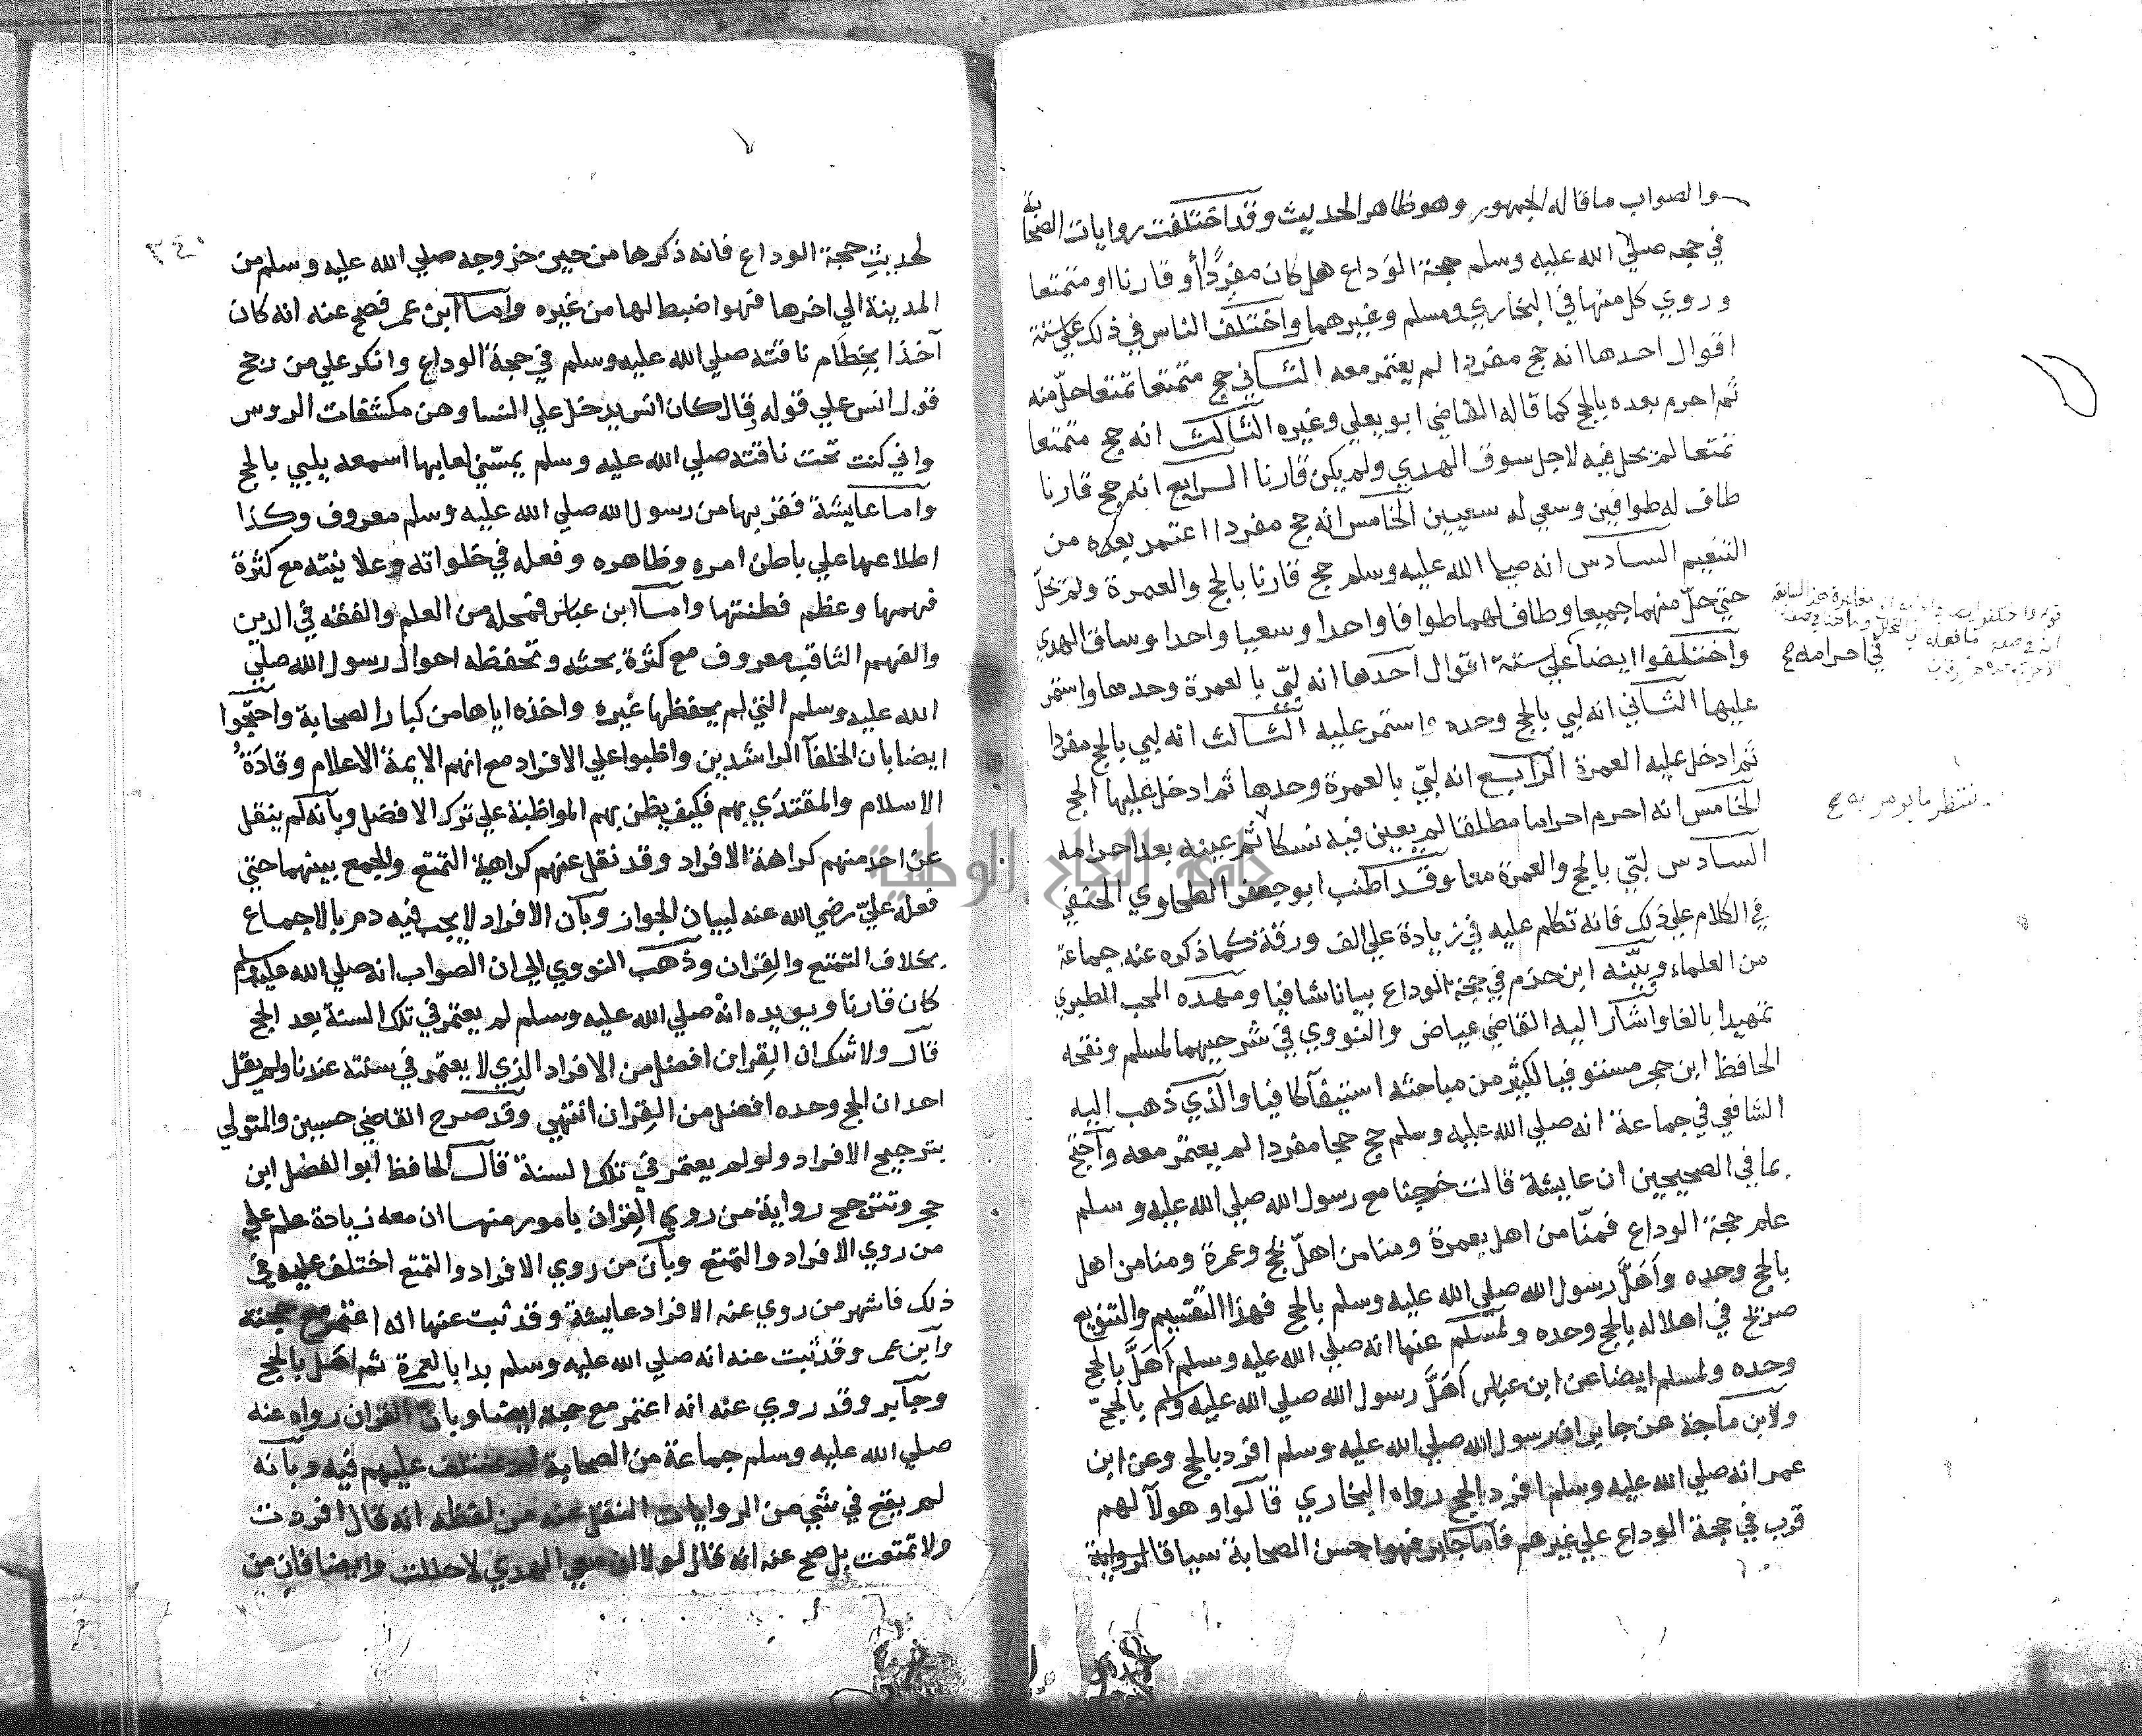 والصواب ما قاله الجمهور وهو ظاهر الحديث وقد اختلفت روايات الصحابة
في حجه صلي الله عليه وسلم حجة الوداع هل كان مفردًا أو قارنا او متمتعا
وروي كل منها في البخاري ومسلم وغيرهما واختلف الناس في ذلك علي ستة
اقوال احدها انه حج مفردا لم يعتمر معه الثاني حج متمتعا تمتعا حلّ منه
ثم احرم بعده بالحج كما قاله القاضي ابو يعلي وغيره الثالث انه حج متمتعا
تمتعا لم يحل فيه لاجل سوق الهدي ولم يكن قارنا الرابع انه حج قارنا
طاف له طوافين وسعي له سعيين الخامس انه حج مفردا اعتمر بعده من
التنعيم السادس انه صلي الله عليه وسلم حج قارنا بالحج والعمرة ولم يحلّ
حتي حلّ منهما جميعا وطاف لهما طوافا واحدا وسعيا واحدا وساق الهدي
واختلفوا ايضا علي ستة اقوال احدها انه لبّي بالعمرة وحدها واستمر
في احرامه
عليها الثاني انه لبي بالحج وحده واستمر عليه الثالث انه لبي بالحج مفردا
ثم ادخل عليه العمرة الرابع انه لبّي بالعمرة وحدها ثم ادخل عليها الحج
الخامس انه احرم احراما مطلقا لم يعين فيه نسكا ثم عينه بعد احرامه
ننتظر ما يومر به
السادس لبّي بالحج والعمرة معا وقد اطنب ابو جعفر الطحاوي الحنفي
في الكلام علي ذلك فانه تكلم عليه في زيادة علي الف ورقة كما ذكره عنه جماعة
من العلماء وبيّنه ابن حزم في حجة الوداع بيانا شافيا ومهده المحب الطبري
تمهيدا بالغا واشار اليه القاضي عياض والنووي في شرحيهما لمسلم ونقحه
الحافظ ابن حجر مستوفيا لكثير من مباحثه استيفآ كافيا والذي ذهب اليه
الشافعي في جماعة انه صلي الله عليه وسلم حج حجا مفردا لم يعتمر معه واحتج
بما في الصحيحين ان عايشة قالت خرجنا مع رسول الله صلي الله عليه وسلم
عام حجة الوداع فمنّا من اهل بعمرة ومنا من اهلّ بحج وعمرة ومنا من اهل
بالحج وحده وأهَلّ رسول الله صلي الله عليه وسلم بالحج فهذا التقسيم والتنويع
صريح في اهلاله بالحج وحده ولمسلم عنها انه صلي الله عليه وسلم أهَلّ بالحج
وحده ولمسلم ايضا عن ابن عباس أهَلّ رسول الله صلي الله عليه وسلم بالحجّ
ولابن ماجة عن جابر ان رسول الله صلي الله عليه وسلم افرد بالحج وعن ابن
عمر انه صلي الله عليه وسلم افرد الحج رواه البخاري قالوا وهولآ لهم
قرب في حجة الوداع علي غيرهم فأما جابر فهو احسن الصحابة سياقا لرواية
لحديثِ حجة الوداع فانه ذكرها من حين خروجه صلي الله عليه وسلم من
المدينة الي اخرها فهو اضبط لها من غيره وأما ابن عمر فصح عنه انه كان
آخذا بخِطَام ناقته صلي الله عليه وسلم في حجة الوداع وانكر علي من رجح
قول انس علي قوله وقال كان انس يدخل علي النسا وهن مكشفات الروس
واني كنت تحت ناقته صلي الله عليه وسلم يمسّني لعابها اسمعه يلبي بالحج
وأما عايشة فقربها من رسول الله صلي الله عليه وسلم معروف وكذا
اطلاعها علي باطن امره وظاهره وفعله في خلواته وعلانيته مع كثرة
فهمها وعظم فطنتها وأما ابن عباس فمحله من العلم والفقه في الدين
والفهم الثاقب معروف مع كثرة بحثه وتحفظه احوال رسول الله صلي
الله عليه وسلم التي لم يحفظها غيره واخذه اياها من كبار الصحابة واحتجوا
ايضا بان الخلفآ الراشدين واظبوا علي الافراد مع انهم الايمة الاعلام وقادَةُ
الاسلام والمقتدَي بهم فكيف يظن بهم المواظبة علي ترك الافضل وبأنه لم ينقل
عن احد منهم كراهة الافراد وقد نقل عنهم كراهية التمتع والجمع بينهما حتي
فعله عليّ رضي الله عنه لبيان الجواز وبأن الافراد لا يجب فيه دم بالاجماع
بخلاف التمتع والقِران وذهب النووي الي ان الصواب انه صلي الله عليه وسلم
كان قارنا ويويده انه صلي الله عليه وسلم لم يعتمر في تلك السنة بعد الحج
قال ولا شك ان القِران افضل من الافراد الذي لا يعتمر في سنته عندنا ولم يقل
احد ان الحج وحده افضل من القِران انتهي وقد صرح القاضي حسين والمتولي
بترجيح الافراد ولو لم يعتمر في تلك السنة قال الحافظ ابو الفضل ابن
حجر وتترجح رواية من روي القِران بامور منها ان معه زيادة علم علي
من روي الافراد والتمتع وبأن من روي الافراد والتمتع اختلف عليه في
ذلك فاشهر من روي عنه الافراد عايشة وقد ثبت عنها انه اعتمر مع حجته
وابن عمر وقد ثبت عنه انه صلي الله عليه وسلم بدا بالعمرة ثم اهَل بالحج
وجابر وقد روي عنه انه اعتمر مع حجته ايضا وبانّ القران رواه عنه
صلي الله عليه وسلم جماعة من الصحابة لم يختلف عليهم فيه وبأنه
لم يقع في شي من الروايات النقل عنه من لفظه انه قال افردت
ولا تمتعت بل صح عنه انه قال لولا ان معي الهدي لاحللت وايضا فان من
جامعة النجاح الوطنية